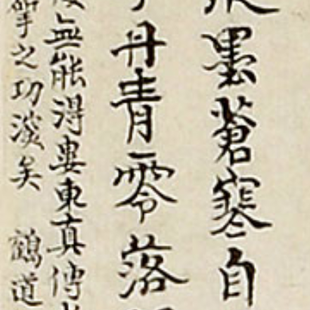 墨蒼寒自
丹青零落
無能得婁東真傳
之功深矣 鶴道